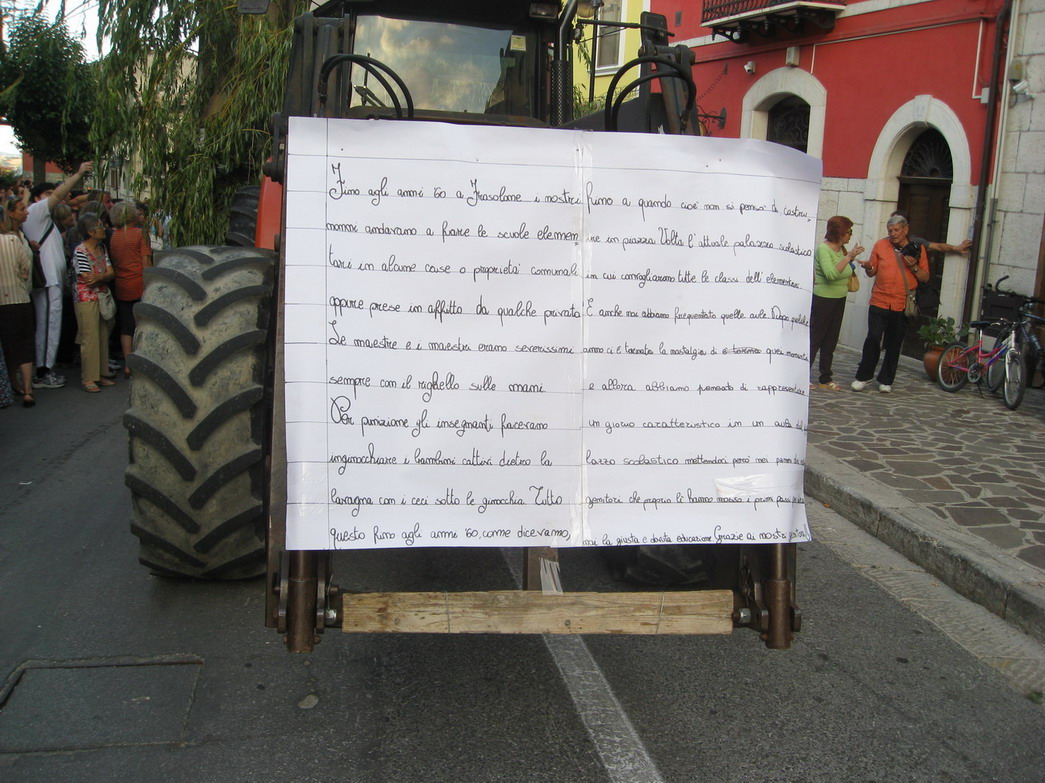 Fino agli anni '60 a Frosolone i nostri
nonni andavano a fare le scuole elemen
tari in alcune case o proprietà comunale
oppure prese in affitto da qualche privato.
Le maestre e i maestri erano severissimi
sempre con il righello sulle mani
Per punizione gli insegnanti facevano
inginocchiare i bambini cattivi dietro la
lavagna con i ceci sotto le ginocchia. Tutto
questo fino agli anni '60, come dicevamo,
fino a quando cioè non si pensò di costru
ire in piazza Volta l'attuale palazzo scolastico
in cui convogliarono tutte le classi dell'elementari.
E anche noi abbiamo frequentato quelle aule. Dopo qualche
anno ci è tornata la nostalgia di quei momenti
e allora abbiamo pensato di rappresentare
un giorno caratteristico in un aula del
lazzo scolastico mettendoci però nei panni dei
genitori che proprio lì hanno mosso i primi passi
la giusta e dovuta educazione. Grazie ai nostri genitori!